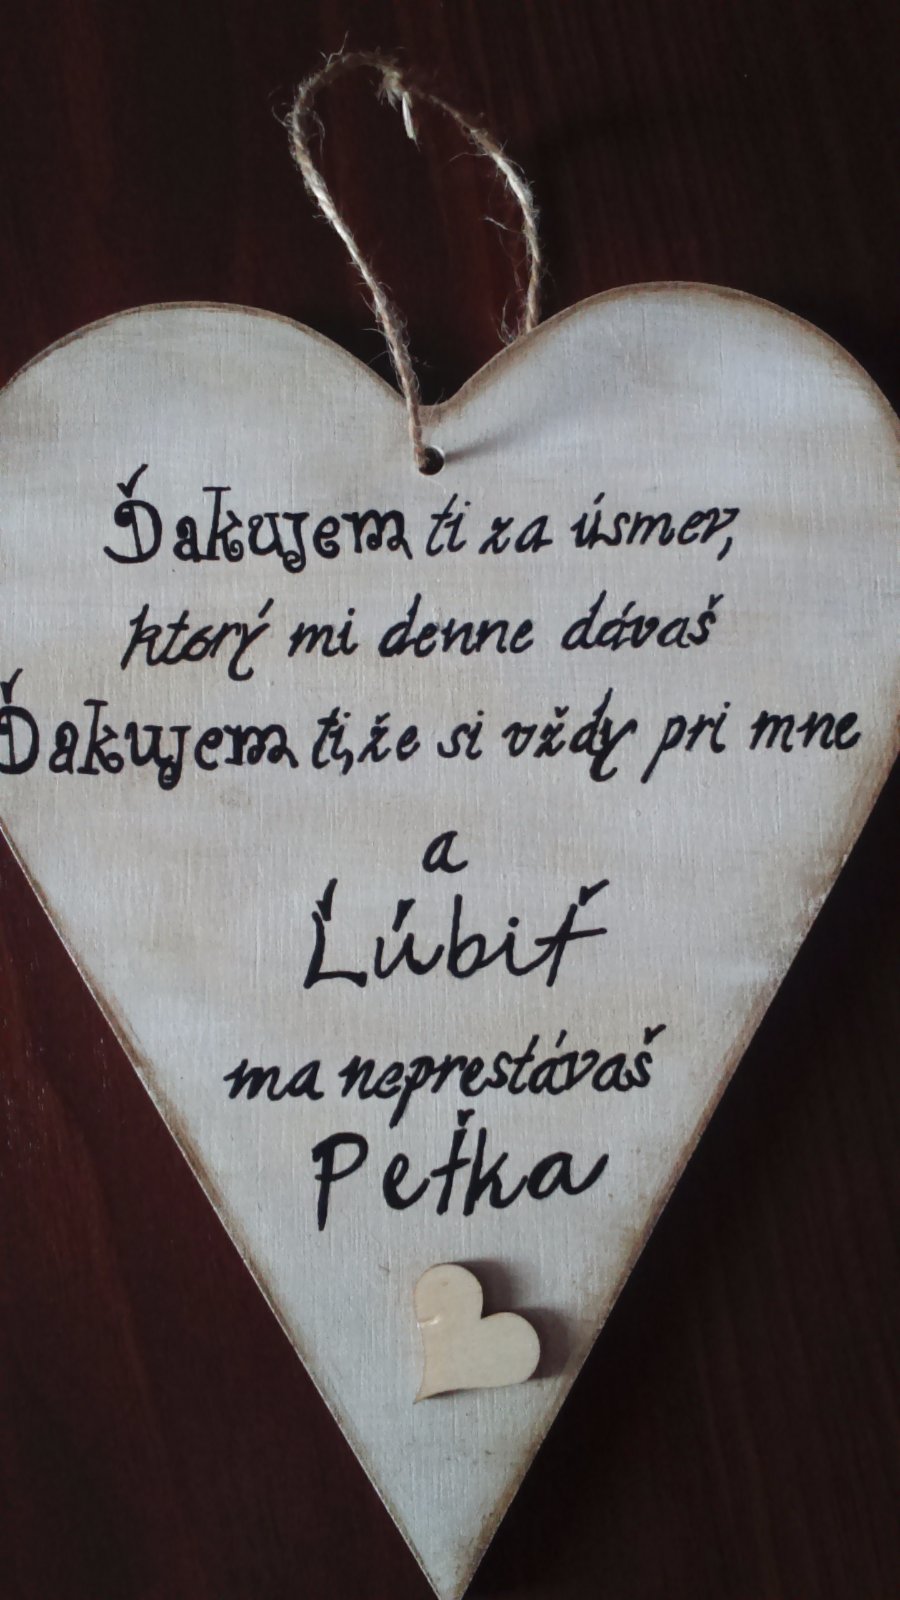 Ďakujem ti za úsmev,
ktorý mi denne dávaš
Ďakujem ti, že si vždy pri mne
a
Ľúbiť
ma neprestávaš
Peťka